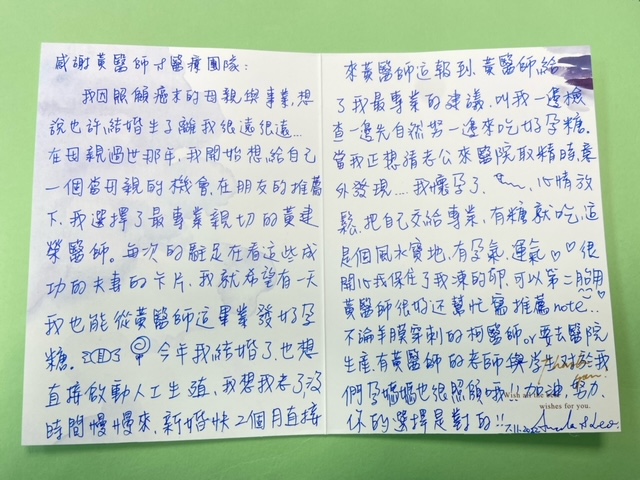 感謝黃醫師&醫療團隊:
我因照顧癌末的母親與事業,想
說也許結婚生子離我很遠很遠...
在母親過世那年,我開始想給自己
一個當母親的機會,在朋友的推薦
下,我選擇了最專業親切的黃建
榮醫師。每次的駐足在看這些成
功的夫妻的卡片,我就希望有一天
我也能從黃醫師這畢業發好孕
糖。今年我結婚了,也想
直接啟動人工生殖,我想我老了,沒
時間慢慢來,新婚快2個月直接
來黃醫師這報到,黃醫師給
了我最專業的建議,叫我一邊檢
查一邊先自然努一邊來吃好孕糖。
當我正想請老公來醫院取精時,意
外發現....我懷孕了,心情放
鬆,把自己交給專業,有糖就吃,這
是個風水寶地,有孕氣、運氣♡♡很
開心我保住了我凍的卵,可以第二胎用
黃醫師很好還幫忙寫推薦note...
不論羊膜穿刺的柯醫師or要去醫院
生產,有黃醫師的老師與學生對於我
們孕媽媽也很照顧哦!!加油,努力,
你的選擇是對的!!
wishes for you.